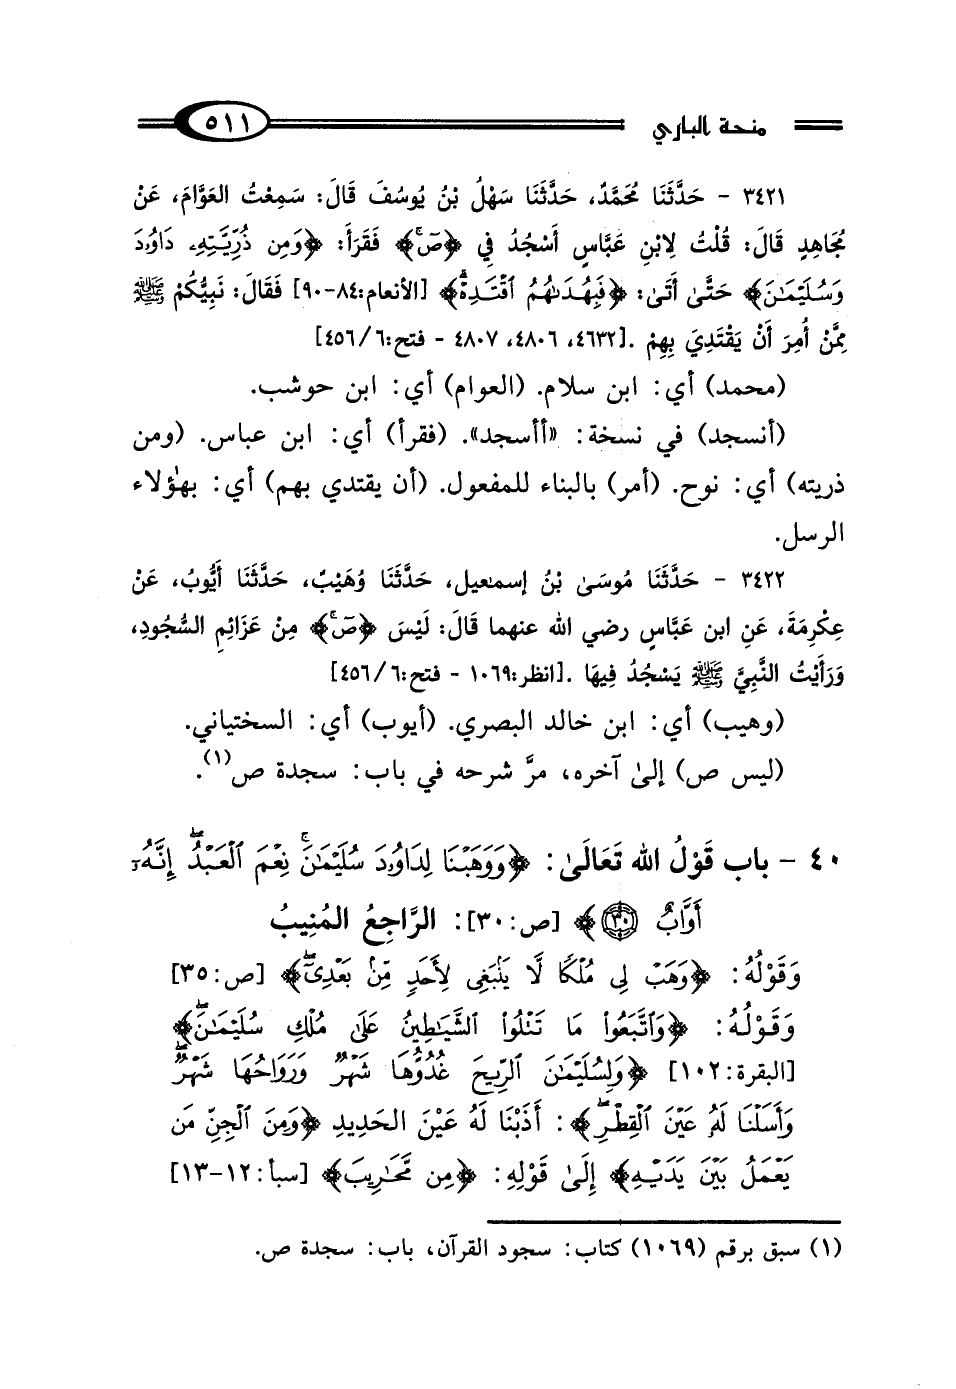 منحة الباري ٥١١
٣٤٢١ - حَدَّثَنَا مُحَمَّدٌ، حَدَّثَنَا سَهْلُ بْنُ يُوسُفَ قَالَ: سَمِعْتُ العَوَّامَ، عَنْ
مُجَاهِدٍ قَالَ: قُلْتُ لِابْنِ عَبَّاسٍ أَسْجُدُ فِي ﴿صٓۚ﴾ فَقَرَأَ: ﴿وَمِن ذُرِّيَّتِهِۦ دَاوُۥدَ
وَسُلَيْمَٰنَ﴾ حَتَّى أَتَى: ﴿فَبِهُدَىٰهُمُ ٱقْتَدِهْۗ﴾ [الأنعام:٨٤-٩٠] فَقَالَ: نَبِيُّكُمْ ﷺ
مِمَّنْ أُمِرَ أَنْ يَقْتَدِيَ بِهِمْ .[٤٦٣٢، ٤٨٠٦، ٤٨٠٧ - فتح:٦/ ٤٥٦]
(محمد) أي: ابن سلام. (العوام) أي: ابن حوشب.
(أنسجد) في نسخة: «أأسجد». (فقرأ) أي: ابن عباس. (ومن
ذريته) أي: نوح. (أمر) بالبناء للمفعول. (أن يقتدي بهم) أي: بهؤلاء
الرسل.
٣٤٢٢ - حَدَّثَنَا مُوسَى بْنُ إسمعيل، حَدَّثَنَا وُهَيْبٌ، حَدَّثَنَا أَيُّوبُ، عَنْ
عِكْرِمَةَ، عَنِ ابن عَبَّاسٍ رضي الله عنهما قَالَ: لَيْسَ ﴿صٓۚ﴾ مِنْ عَزَائِمِ السُّجُودِ،
وَرَأَيْتُ النَّبِيَّ ﷺ يَسْجُدُ فِيهَا .[انظر:١٠٦٩ - فتح:٦/ ٤٥٦]
(وهيب) أي: ابن خالد البصري. (أيوب) أي: السختياني.
(ليس ص) إلى آخره، مرَّ شرحه في باب: سجدة ص(١).
٤٠ - باب قَوْلُ الله تَعَالَى: ﴿وَوَهَبْنَا لِدَاوُۥدَ سُلَيْمَٰنَۚ نِعْمَ ٱلْعَبْدُۖ إِنَّهُۥٓ
أَوَّابٌ ٣٠﴾ [ص:٣٠]: الرَّاجِعُ المُنِيبُ
وَقَوْلُهُ: ﴿وَهَبْ لِي مُلْكًا لَّا يَنۢبَغِي لِأَحَدٍ مِّنۢ بَعْدِيٓۖ﴾ [ص:٣٥]
وَقَوْلُهُ: ﴿وَٱتَّبَعُواْ مَا تَتْلُواْ ٱلشَّيَٰطِينُ عَلَىٰ مُلْكِ سُلَيْمَٰنَۖ﴾
[البقرة:١٠٢] ﴿وَلِسُلَيْمَٰنَ ٱلرِّيحَ غُدُوُّهَا شَهْرٌ وَرَوَاحُهَا شَهْرٌۖ
وَأَسَلْنَا لَهُۥ عَيْنَ ٱلْقِطْرِۖ﴾: أَذَبْنَا لَهُ عَيْنَ الحَدِيدِ ﴿وَمِنَ ٱلْجِنِّ مَن
يَعْمَلُ بَيْنَ يَدَيْهِ﴾ إِلَى قَوْلِهِ: ﴿مِن مَّحَٰرِيبَ﴾ [سبأ:١٢-١٣]
(١) سبق برقم (١٠٦٩) كتاب: سجود القرآن، باب: سجدة ص.